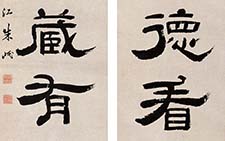 德看
藏有
江朱岷